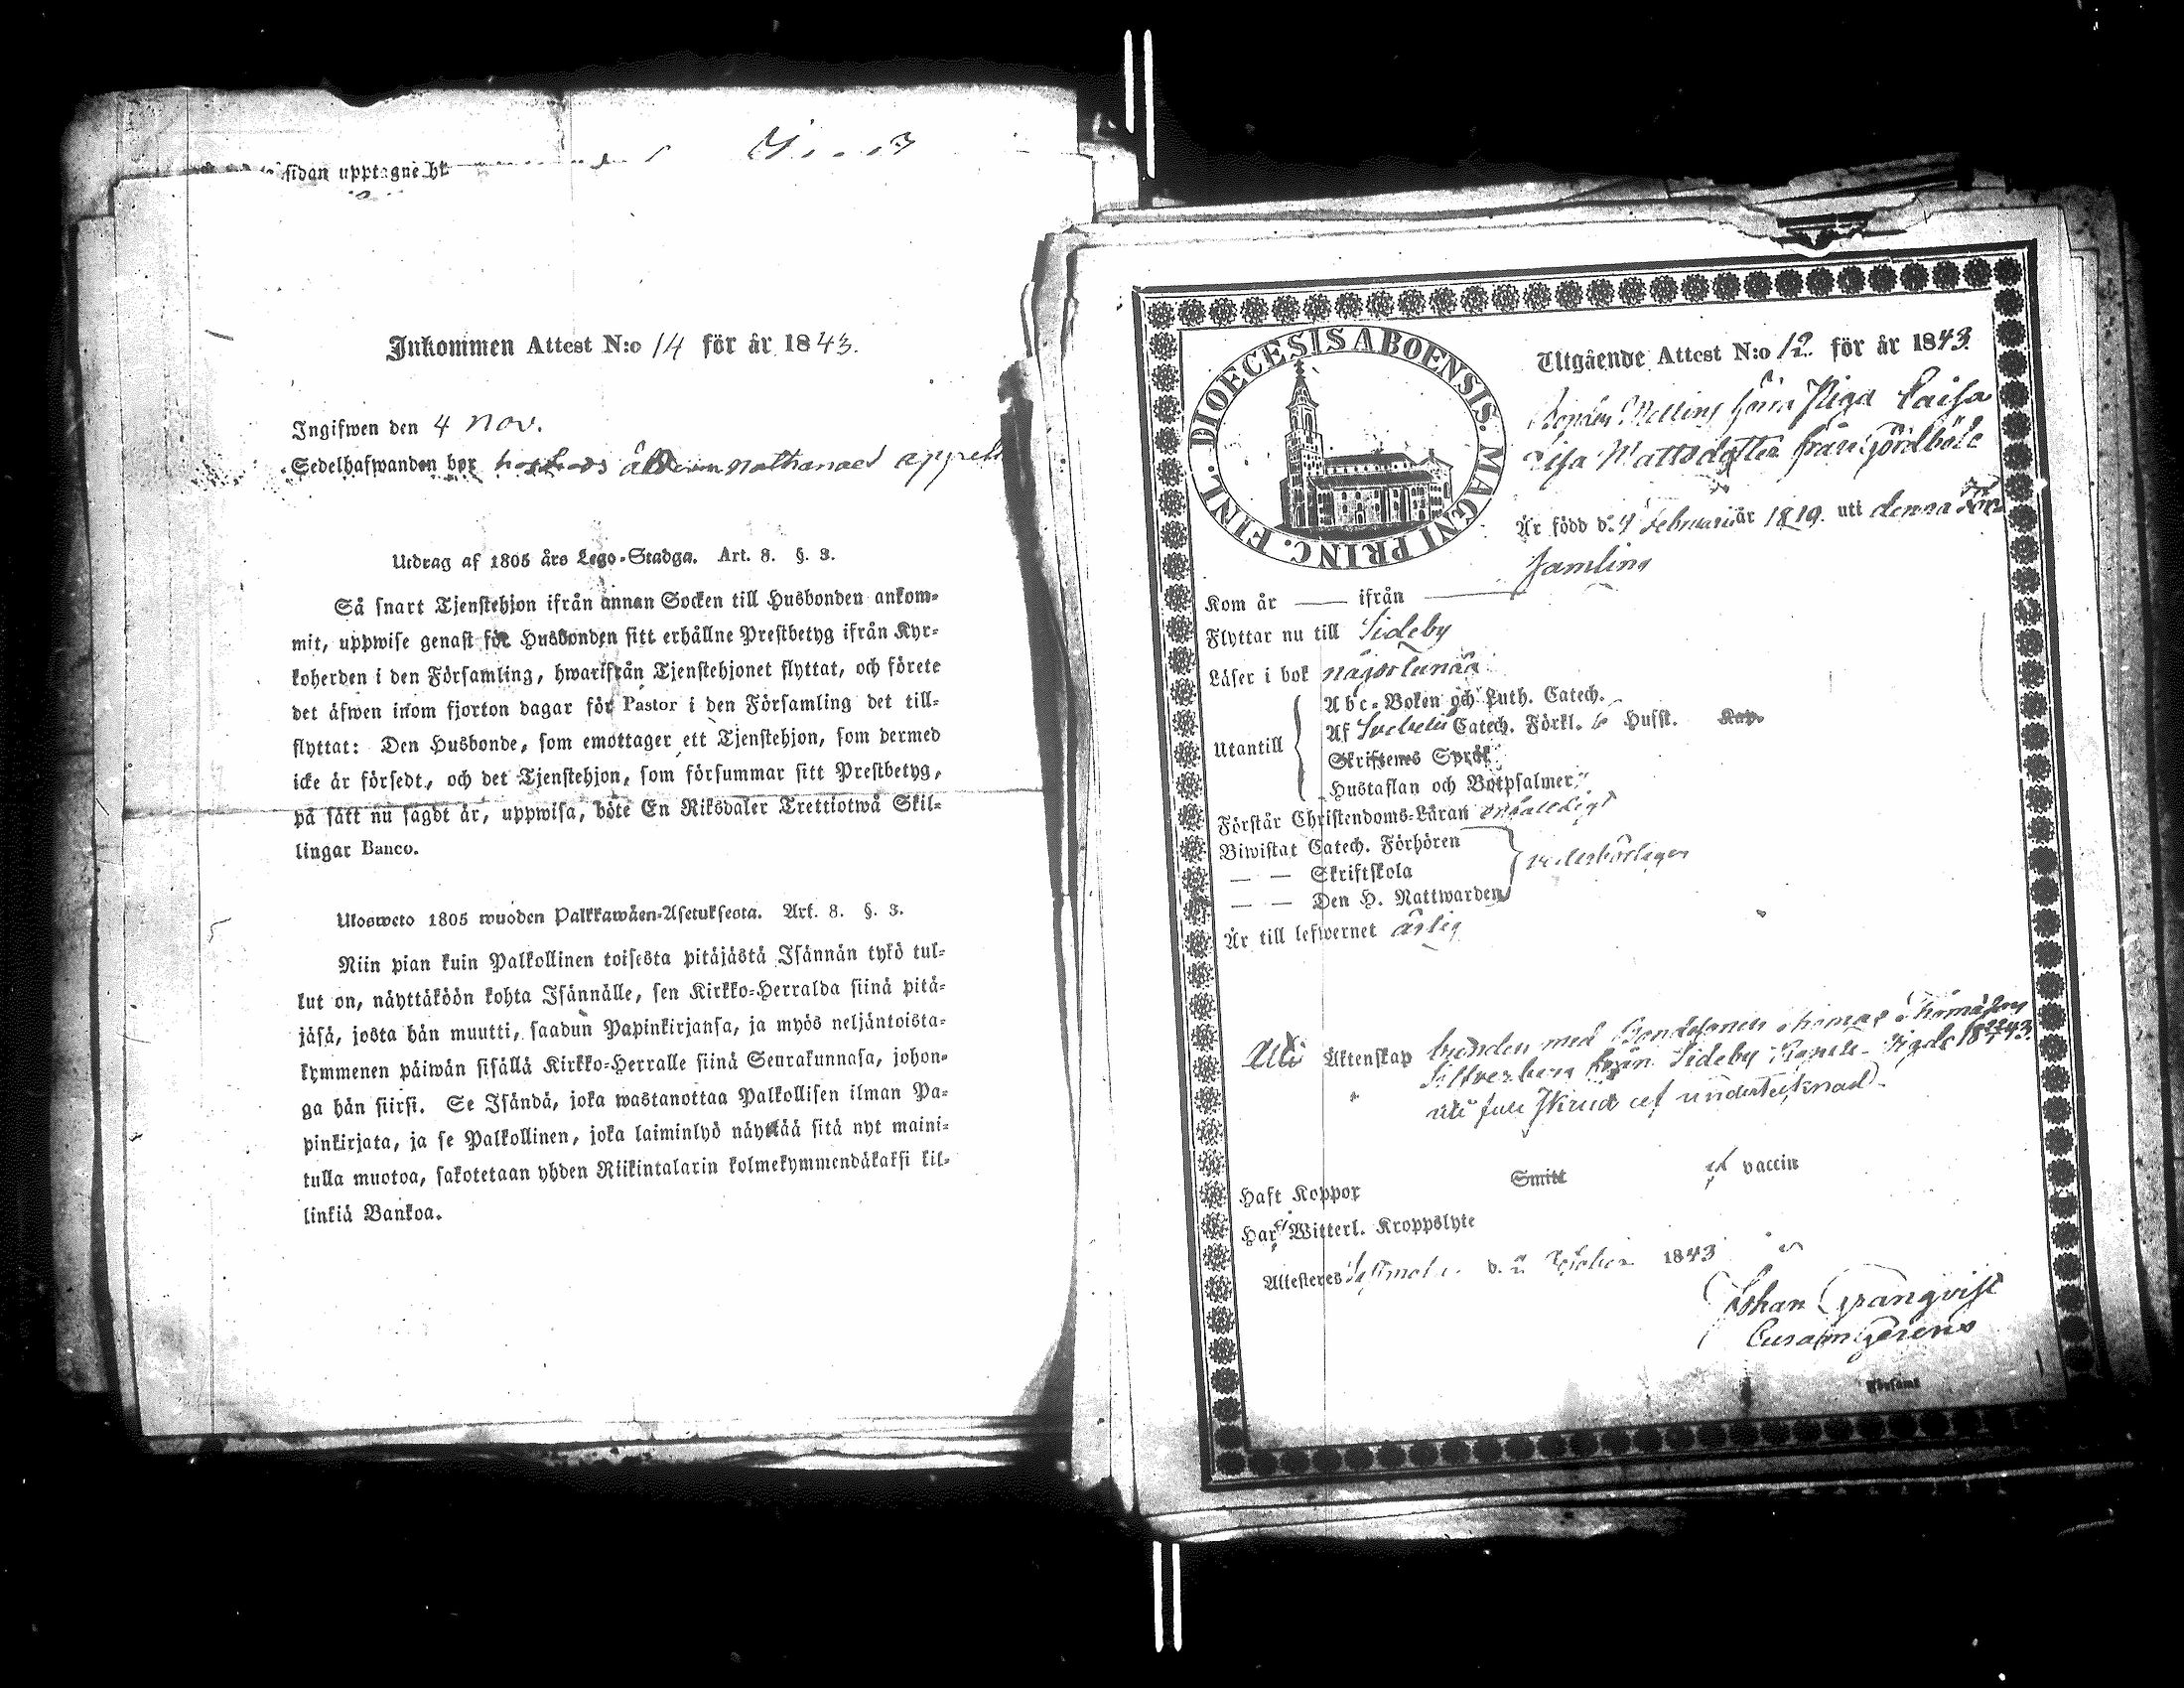 sidan upptagne
Inkommen Attest N:o 14 för år 1843.
Ingifwen den 4 Nov.
Sedelhafwanden bor hos Nathanael
Utdrag af 1805 års Lego-Stadga. Art. 8. §. 3.
Så snart Tjenstehjon ifrån annan Socken till Husbonden ankom-
mit, uppwise genast för Husbonden sitt erhållne Prestbetyg ifrån Kyr-
koherden i den Församling, hwarifrån Tjenstehjonet flyttat, och förete
det äfwen inom fjorton dagar för Pastor i den Församling det till-
flyttat: Den Husbonde, som emottager ett Tjenstehjon, som dermed
icke är försedt, och det Tjenstehjon, som försummar sitt Prestbetyg,
på sätt nu sagdt är, uppwisa, böte En Riksdaler Trettiotwå Skil-
lingar Banco.
Ulosweto 1805 wuoden Palkkawäen-Asetuksesta. Art. 8. §. 3.
Niin pian kuin Palkollinen toisesta pitäjästä Isännän tykö tul-
lut on, näyttäköön kohta Isännälle, sen Kirkko-Herralda siinä pitä-
jäsä, josta hän muutti, saadun Papinkirjansa, ja myös neljäntoista-
kymmenen päiwän sisällä Kirkko-Herralle siinä Seurakunnasa, johon-
ga hän siirsi. Se Isändä, joka wastanottaa Palkollisen ilman Pa-
pinkirjata, ja se Palkollinen, joka laiminlyö näyttää sitä nyt maini-
tulla muotoa, sakotetaan yhden Riikintalarin kolmekymmendäkaksi kil-
linkiä Bankoa.
DIOECESIS ABOENSIS. MAGNI PRINC. FINL.
Utgående Attest N:o 12 för år 1843.
Piga Caisa
Lisa Mattsdotter från
Är född d. 4 Februari år 1819. uti denna För
samling
Kom år — ifrån —
Flyttar nu till Sideby
Läser i bok någorlunda
Utantill
Abc-Boken och Luth. Catech.
Af Svebelii Catech. Förkl. Hufst. Kap.
Skriftenes Språk
Hustaflan och Botpsalmer
Förstår Christendoms-Läran enfaldigt
Biwistat Catech. Förhören
— — Skriftskola
— — Den H. Nattwarden
wederbörligen
Är till lefwernet ärlig
Till Äktenskap bunden med Bondesonen Thomas Thomasson
Silfverberg från Sideby 1843.
undertecknad
Haft Koppor Smitt vaccin
Har ej Witterl. Kroppslyte
Attesteres d. 2 October 1843
Johan Granqvist
Curam Gerens
Församl